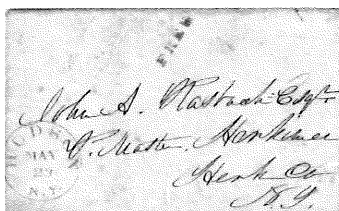 FREE
John A. Rasbach Esqr.
P. Master, Herkimer
Herk Co
N.Y.
MAY
N.Y.